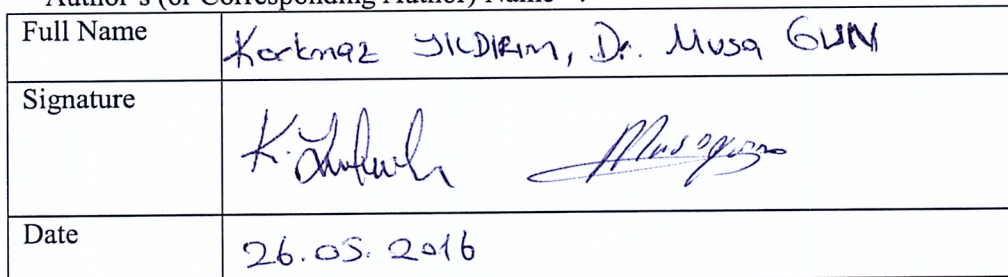 Author's (or Corresponding Author) Name
Full Name Korkmaz YILDIRIM, Dr. Musa GUN
Signature K. Musagun
Date 26.05.2016